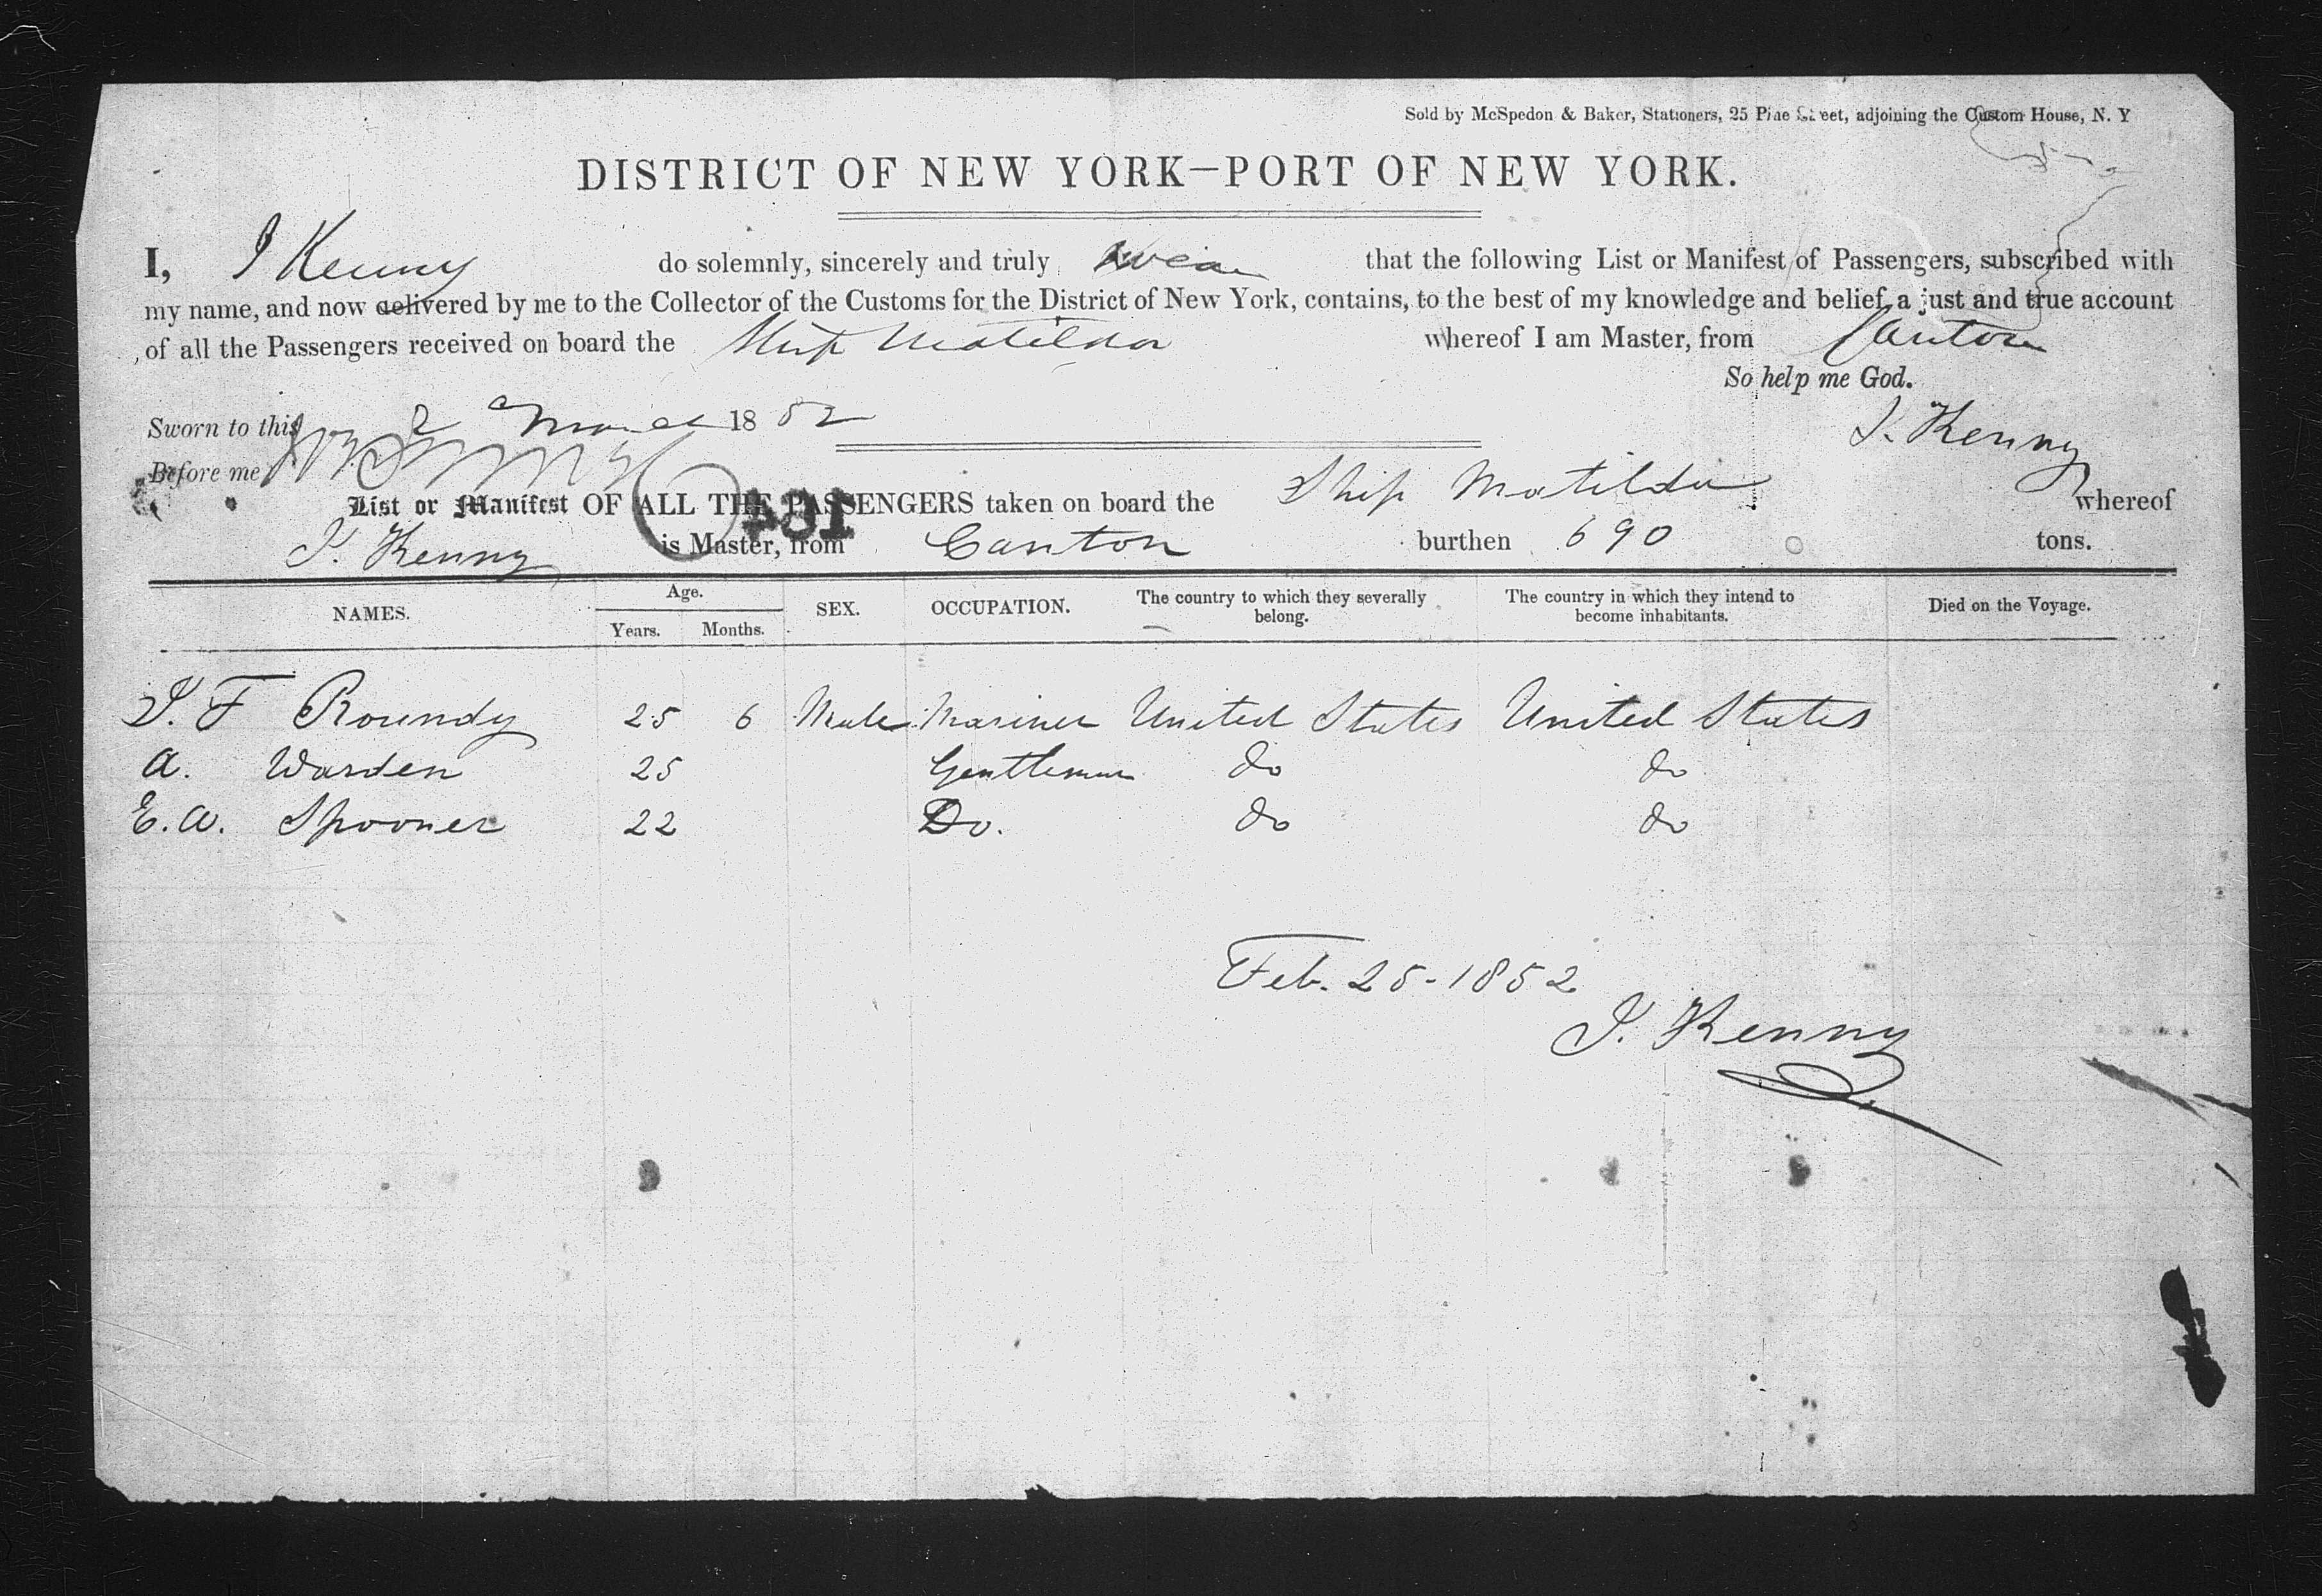 Sold by McSpedon & Baker, Stationers, 25 Pine Street, adjoining the Custom House, N. Y
DISTRICT OF NEW YORK—PORT OF NEW YORK.
I, I Kenny do solemnly, sincerely and truly swear that the following List or Manifest of Passengers, subscribed with
my name, and now delivered by me to the Collector of the Customs for the District of New York, contains, to the best of my knowledge and belief, a just and true account
of all the Passengers received on board the Ship Matilda whereof I am Master, from Canton
So help me God.
Sworn to this 2 March 1852
I. Kenny
Before me
List or Manifest OF ALL THE PASSENGERS taken on board the Ship Matilda whereof
I. Kenny is Master, from Canton burthen 690 tons.
NAMES. Age. Years. Months. SEX. OCCUPATION. The country to which they severally belong. The country in which they intend to become inhabitants. Died on the Voyage.
I. F Roundy 25 6 Male Mariner United States United States
A. Warden 25 Gentleman do do
E. A. Spooner 22 Do. do do
Feb. 25-1852
I. Kenny